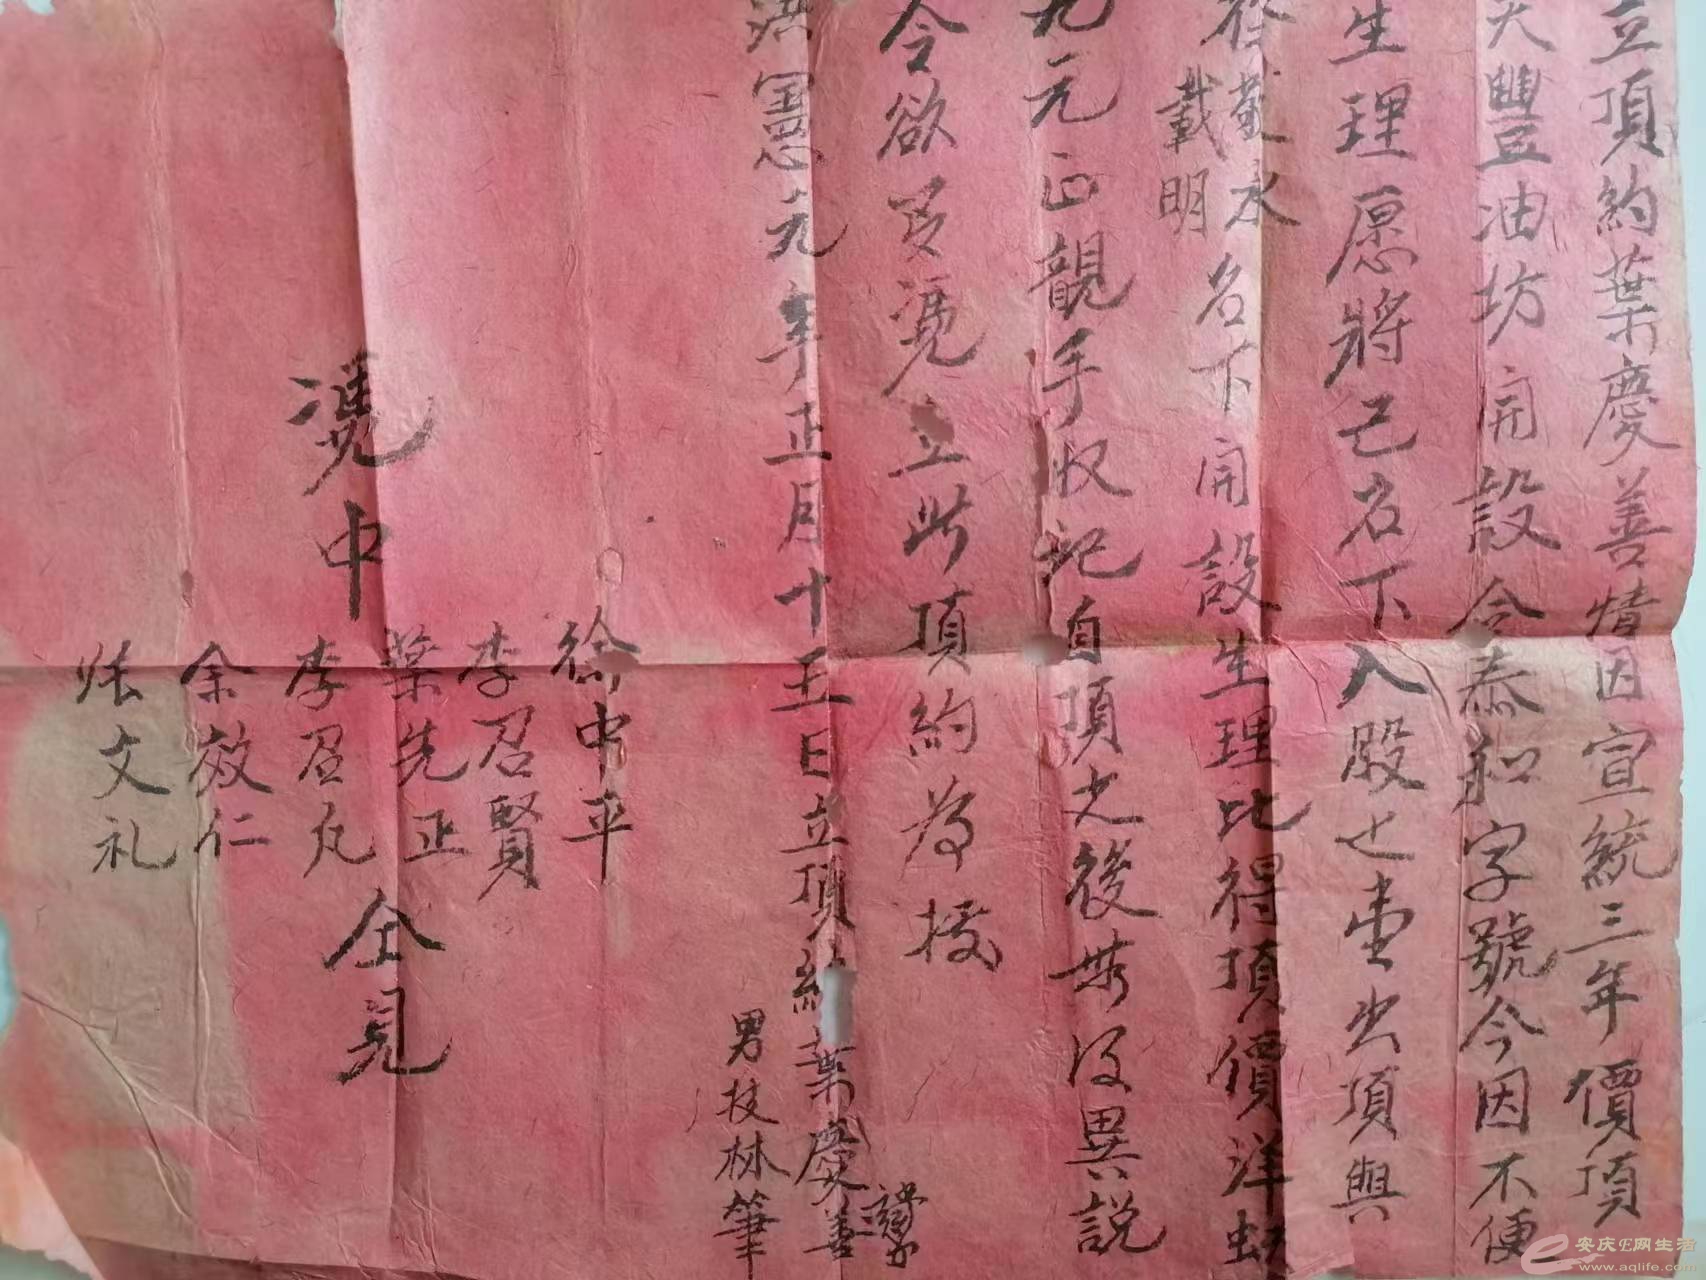 立頂約葉慶善情因宣統三年價頂
天豐油坊開設今泰和字號今因不便
生理愿將己名下入股七壹出頂與
徐
載明
永名下開設生理比得頂價洋
元正親手收訖自頂之後無得異說
今欲有凴立此頂約為據
洪憲元年正月十五日立頂約葉慶善
男技林筆
凴中
徐中平
李召賢
葉先正
李召凡
余效仁
張文礼
仝見
安庆E网生活
www.aqlife.com